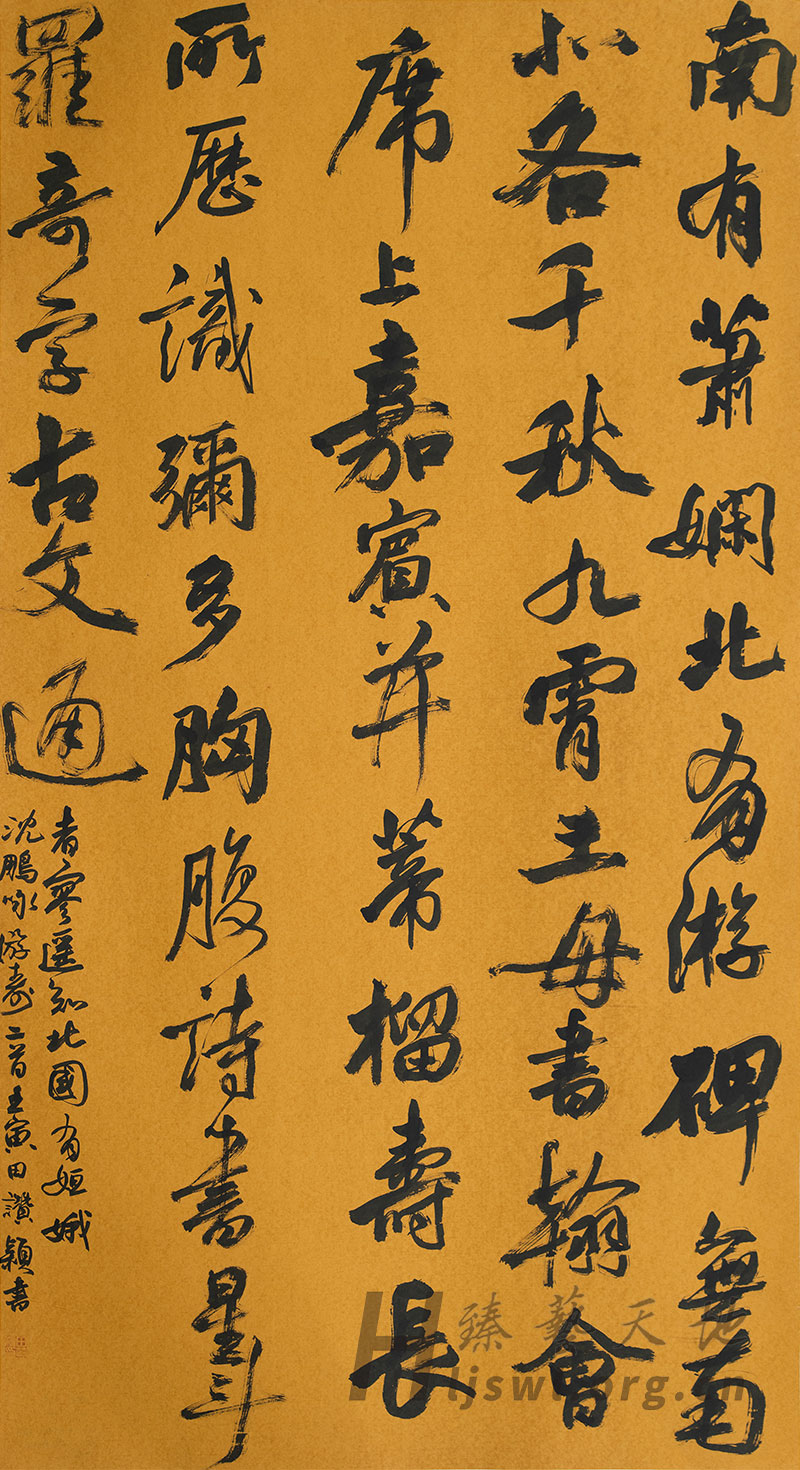 南有蕭嫻北有游碑無南
北各千秋九霄王母書翰會
席上嘉賓并蒂榴壽長
所歷識彌多胸腹詩書星斗
羅奇字古文通
者寥遥知北國有姮娥
沈鵬咏游壽二首壬寅田讚穎書
臻藝天